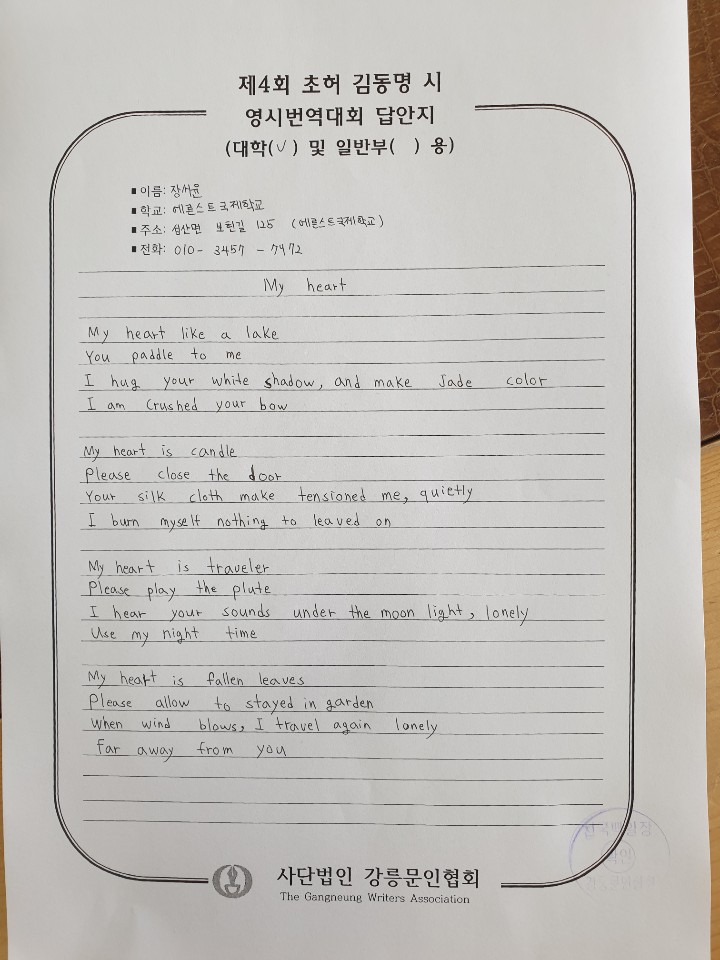 제4회 초허 김동명 시
영시번역대회 답안지
(대학(✓) 및 일반부( ) 용)
■ 이름: 장서윤
■ 학교: 에른스트국제학교
■ 주소: 성산면 보현길 125 (에른스트국제학교)
■ 전화: 010- 3457 - 7472
My heart
My heart like a lake
You paddle to me
I hug your white shadow, and make Jade color
I am crushed your bow
My heart is candle
Please close the door
Your silk cloth make tensioned me, quietly
I burn myself nothing to leaved on
My heart is traveler
Please play the plute
I hear your sounds under the moon light, lonely
Use my night time
My heart is fallen leaves
Please allow to stayed in garden
When wind blows, I travel again lonely
far away from you
사단법인 강릉문인협회
The Gangneung Writers Association